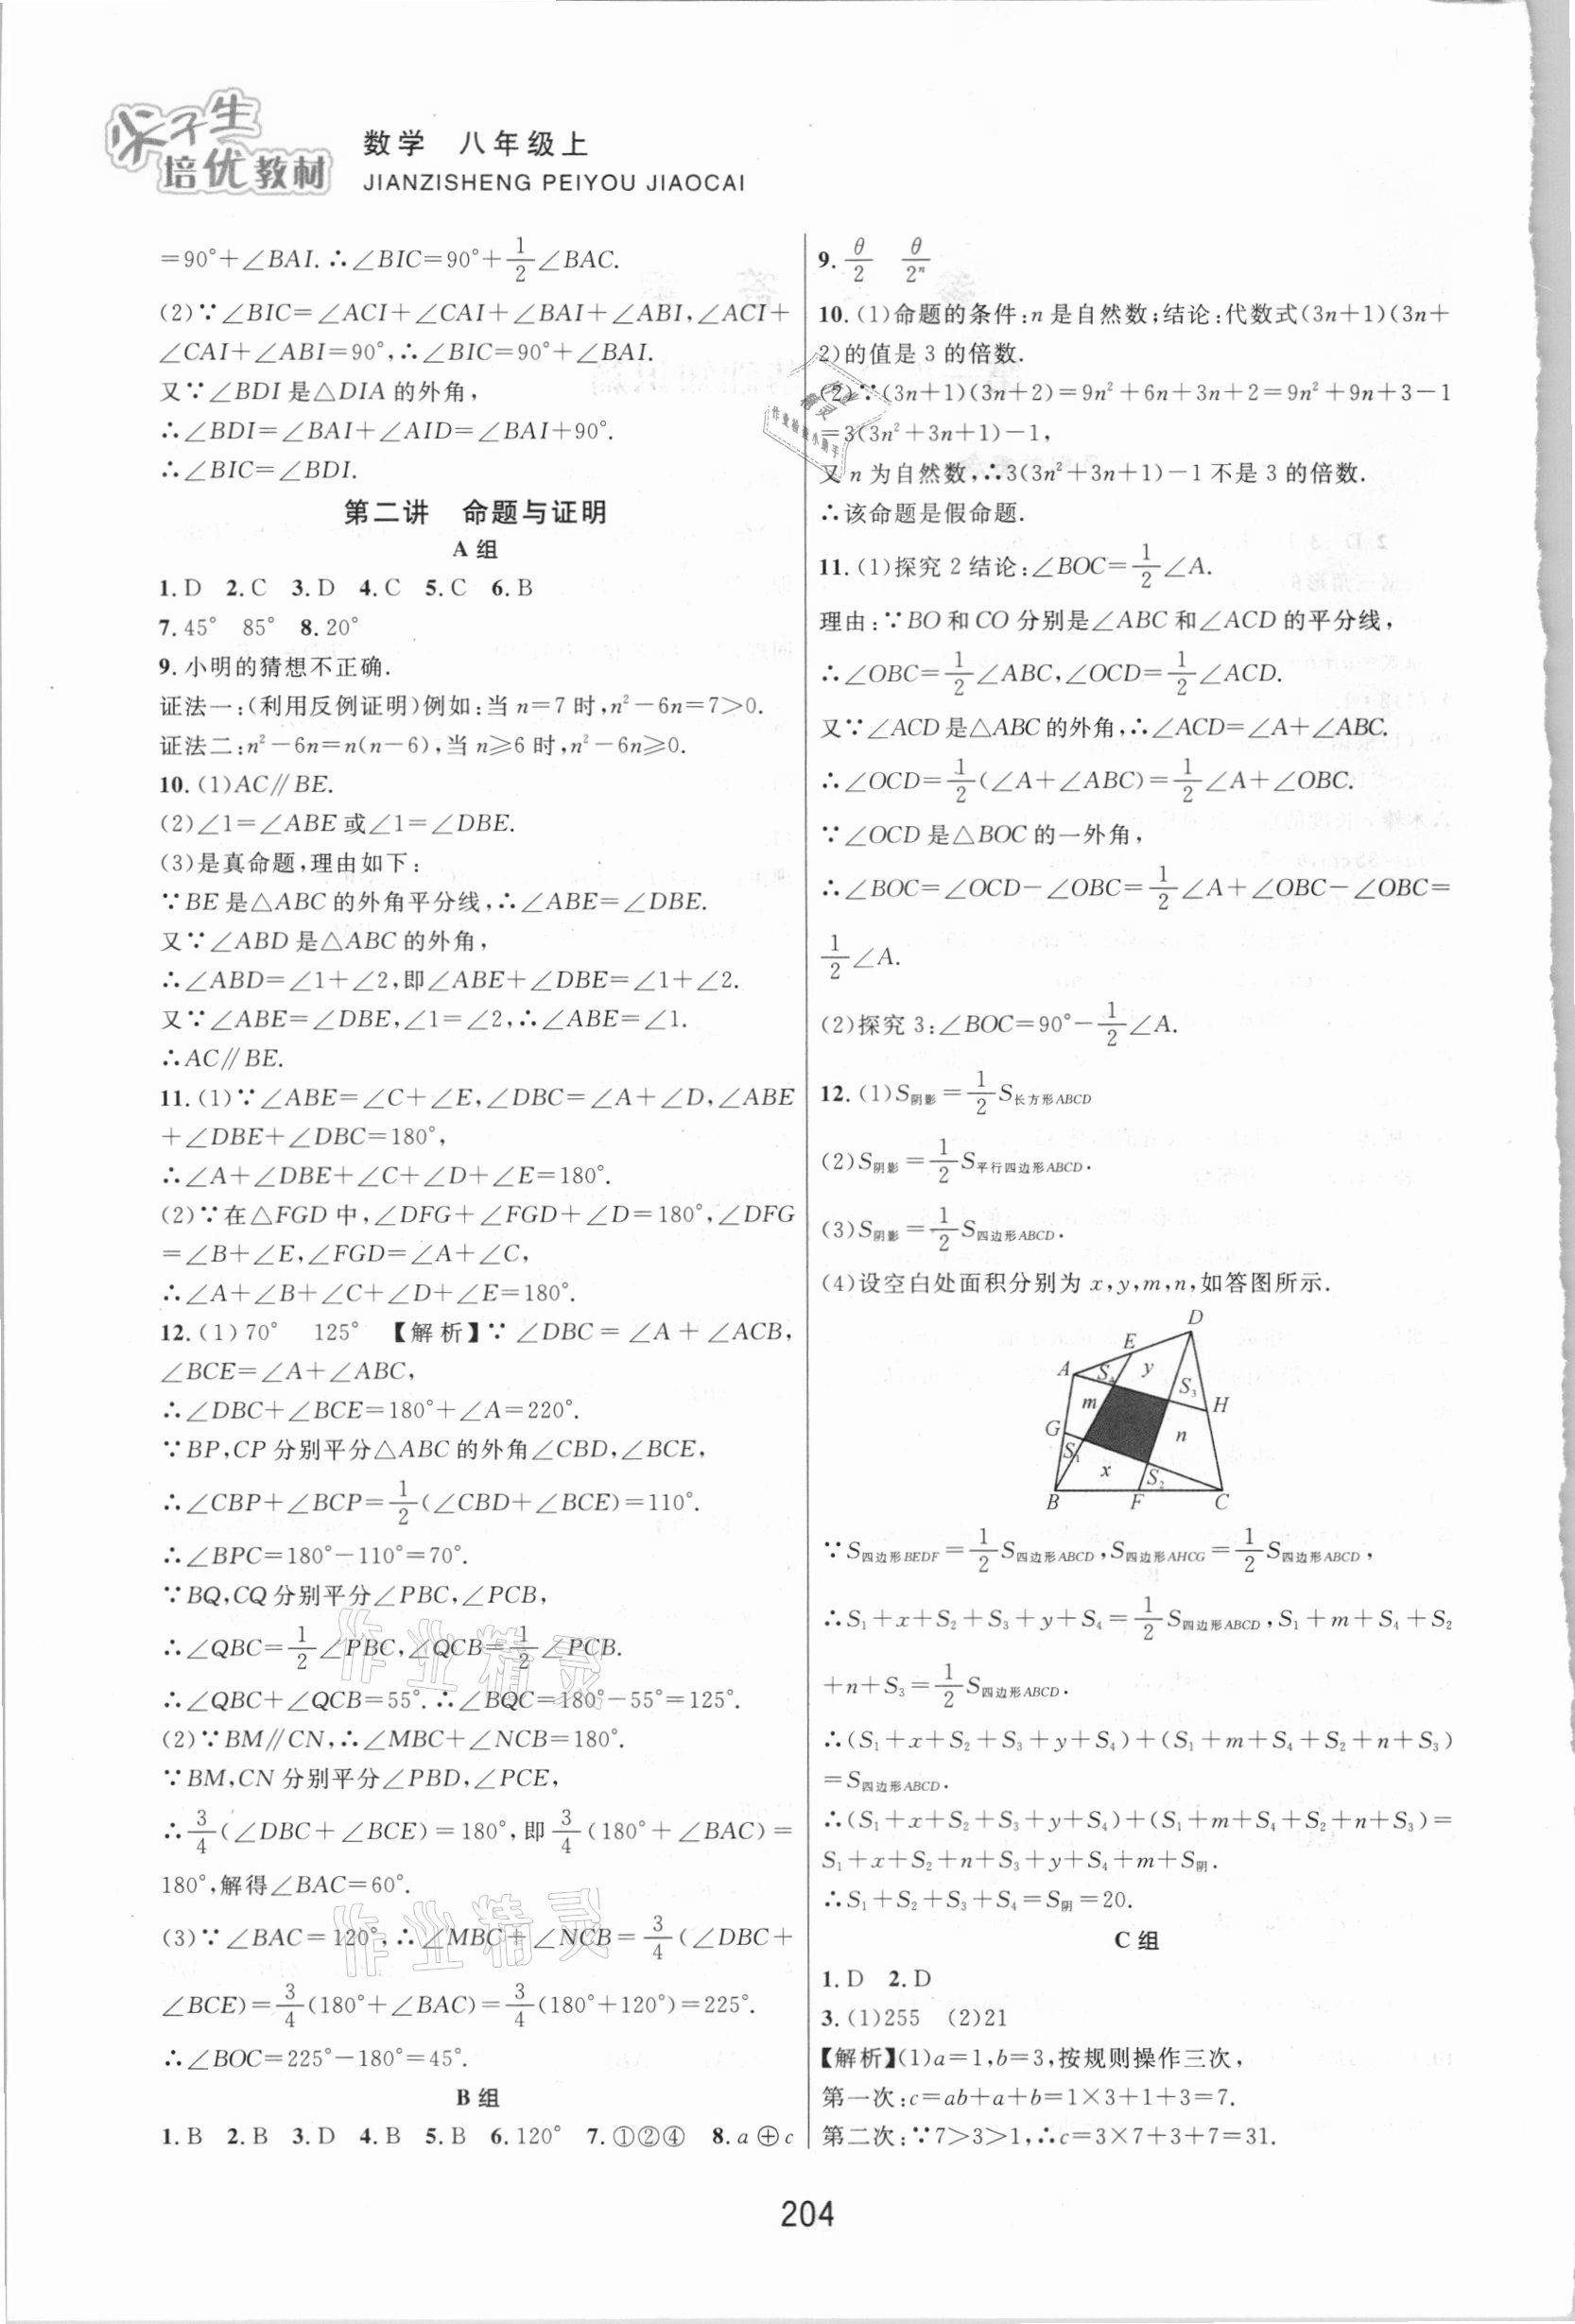 尖子生
培优教材
数学 八年级上
JIANZISHENG PEIYOU JIAOCAI
=90°+∠BAI.∴∠BIC=90°+1/2∠BAC.
(2)∵∠BIC=∠ACI+∠CAI+∠BAI+∠ABI,∠ACI+
∠CAI+∠ABI=90°,∴∠BIC=90°+∠BAI.
又∵∠BDI是△DIA的外角,
∴∠BDI=∠BAI+∠AID=∠BAI+90°.
∴∠BIC=∠BDI.
第二讲 命题与证明
A组
1.D 2.C 3.D 4.C 5.C 6.B
7.45° 85° 8.20°
9.小明的猜想不正确.
证法一:(利用反例证明)例如:当n=7时,n²-6n=7>0.
证法二:n²-6n=n(n-6),当n≥6时,n²-6n≥0.
10.(1)AC∥BE.
(2)∠1=∠ABE或∠1=∠DBE.
(3)是真命题,理由如下:
∵BE是△ABC的外角平分线,∴∠ABE=∠DBE.
又∵∠ABD是△ABC的外角,
∴∠ABD=∠1+∠2,即∠ABE+∠DBE=∠1+∠2.
又∵∠ABE=∠DBE,∠1=∠2,∴∠ABE=∠1.
∴AC∥BE.
11.(1)∵∠ABE=∠C+∠E,∠DBC=∠A+∠D,∠ABE
+∠DBE+∠DBC=180°,
∴∠A+∠DBE+∠C+∠D+∠E=180°.
(2)∵在△FGD中,∠DFG+∠FGD+∠D=180°,∠DFG
=∠B+∠E,∠FGD=∠A+∠C,
∴∠A+∠B+∠C+∠D+∠E=180°.
12.(1)70° 125° 【解析】∵∠DBC=∠A+∠ACB,
∠BCE=∠A+∠ABC,
∴∠DBC+∠BCE=180°+∠A=220°.
∵BP,CP分别平分△ABC的外角∠CBD,∠BCE,
∴∠CBP+∠BCP=1/2(∠CBD+∠BCE)=110°.
∴∠BPC=180°-110°=70°.
∵BQ,CQ分别平分∠PBC,∠PCB,
∴∠QBC=1/2∠PBC,∠QCB=1/2∠PCB.
∴∠QBC+∠QCB=55°.∴∠BQC=180°-55°=125°.
(2)∵BM∥CN,∴∠MBC+∠NCB=180°.
∵BM,CN分别平分∠PBD,∠PCE,
∴3/4(∠DBC+∠BCE)=180°,即3/4(180°+∠BAC)=
180°,解得∠BAC=60°.
(3)∵∠BAC=120°,∴∠MBC+∠NCB=3/4(∠DBC+
∠BCE)=3/4(180°+∠BAC)=3/4(180°+120°)=225°.
∴∠BOC=225°-180°=45°.
B组
1.B 2.B 3.D 4.B 5.B 6.120° 7.①②④ 8.a⊕c
9.θ/2 θ/2ⁿ
10.(1)命题的条件:n是自然数;结论:代数式(3n+1)(3n+
2)的值是3的倍数.
(2)∵(3n+1)(3n+2)=9n²+6n+3n+2=9n²+9n+3-1
=3(3n²+3n+1)-1,
又n为自然数,∴3(3n²+3n+1)-1不是3的倍数.
∴该命题是假命题.
11.(1)探究2结论:∠BOC=1/2∠A.
理由:∵BO和CO分别是∠ABC和∠ACD的平分线,
∴∠OBC=1/2∠ABC,∠OCD=1/2∠ACD.
又∵∠ACD是△ABC的外角,∴∠ACD=∠A+∠ABC.
∴∠OCD=1/2(∠A+∠ABC)=1/2∠A+∠OBC.
∵∠OCD是△BOC的一外角,
∴∠BOC=∠OCD-∠OBC=1/2∠A+∠OBC-∠OBC=
1/2∠A.
(2)探究3:∠BOC=90°-1/2∠A.
12.(1)S阴影=1/2S长方形ABCD
(2)S阴影=1/2S平行四边形ABCD.
(3)S阴影=1/2S四边形ABCD.
(4)设空白处面积分别为x,y,m,n,如答图所示.
D
E
A S₄ y
S₃
m H
G n
S₁
x S₂
B F C
∵S四边形BEDF=1/2S四边形ABCD,S四边形AHCG=1/2S四边形ABCD,
∴S₁+x+S₂+S₃+y+S₄=1/2S四边形ABCD,S₁+m+S₄+S₂
+n+S₃=1/2S四边形ABCD.
∴(S₁+x+S₂+S₃+y+S₄)+(S₁+m+S₄+S₂+n+S₃)
=S四边形ABCD.
∴(S₁+x+S₂+S₃+y+S₄)+(S₁+m+S₄+S₂+n+S₃)=
S₁+x+S₂+n+S₃+y+S₄+m+S阴.
∴S₁+S₂+S₃+S₄=S阴=20.
C组
1.D 2.D
3.(1)255 (2)21
【解析】(1)a=1,b=3,按规则操作三次,
第一次:c=ab+a+b=1×3+1+3=7.
第二次:∵7>3>1,∴c=3×7+3+7=31.
204
作业精灵
作业精灵